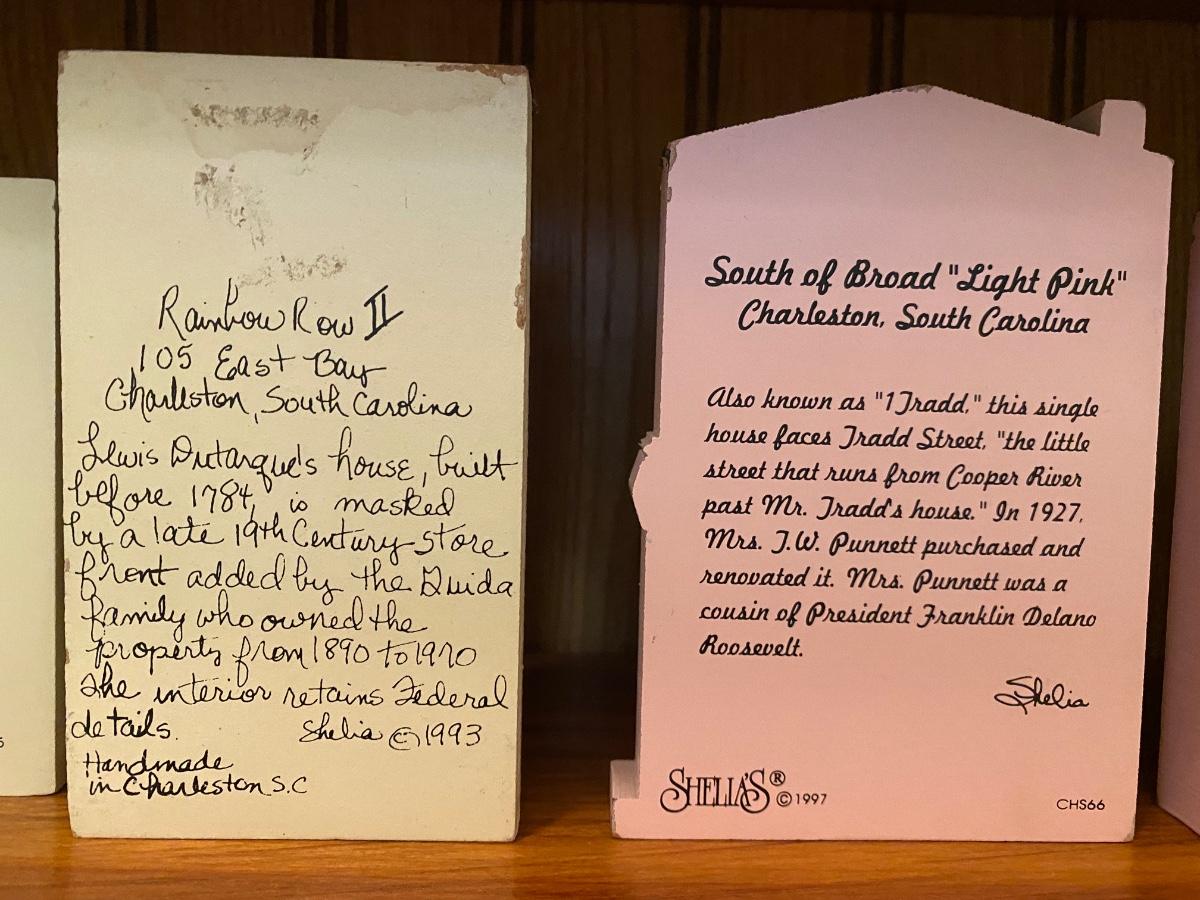 Rainbow Row II
105 East Bay
Charleston, South Carolina
Lewis Dutarque's house, built
before 1784, is masked
by a late 19th Century store
front added by the Duida
family who owned the
property from 1890 to 1970
The interior retains Federal
details.
Shelia © 1993
Handmade
in Charleston S.C
South of Broad "Light Pink"
Charleston, South Carolina
Also known as "1 Tradd," this single
house faces Tradd Street, "the little
street that runs from Cooper River
past Mr. Tradd's house." In 1927,
Mrs. J.W. Punnett purchased and
renovated it. Mrs. Punnett was a
cousin of President Franklin Delano
Roosevelt.
Shelia
SHELIA'S® ©1997
CHS66